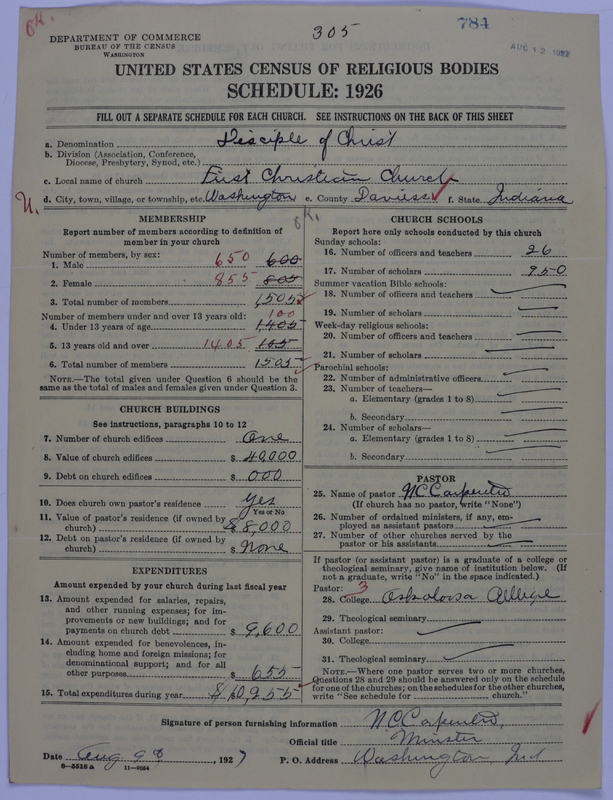 OK.
305
784
AUG 12 1927
DEPARTMENT OF COMMERCE
BUREAU OF THE CENSUS
WASHINGTON
UNITED STATES CENSUS OF RELIGIOUS BODIES
SCHEDULE: 1926
FILL OUT A SEPARATE SCHEDULE FOR EACH CHURCH. SEE INSTRUCTIONS ON THE BACK OF THIS SHEET
a. Denomination Disciple of Christ
b. Division (Association, Conference, Diocese, Presbytery, Synod, etc.)
c. Local name of church First Christian Church
U. d. City, town, village, or township, etc. Washington e. County Daviess f. State Indiana
OK.
MEMBERSHIP
Report number of members according to definition of
member in your church
Number of members, by sex:
1. Male 650 600
2. Female 855 805
3. Total number of members 1505
Number of members under and over 13 years old:
4. Under 13 years of age 100 1405
5. 13 years old and over 1405
6. Total number of members 1505
NOTE.—The total given under Question 6 should be the
same as the total of males and females given under Question 3.
CHURCH BUILDINGS
See instructions, paragraphs 10 to 12
7. Number of church edifices One
8. Value of church edifices $ 40,000
9. Debt on church edifices $ 000
10. Does church own pastor's residence Yes
Yes or No
11. Value of pastor's residence (if owned by
church) $ 8,000
12. Debt on pastor's residence (if owned by
church) $ None
EXPENDITURES
Amount expended by your church during last fiscal year
13. Amount expended for salaries, repairs,
and other running expenses; for im-
provements or new buildings; and for
payments on church debt $ 9,600
14. Amount expended for benevolences, in-
cluding home and foreign missions; for
denominational support; and for all
other purposes $ 655
15. Total expenditures during year $ 10,255
CHURCH SCHOOLS
Report here only schools conducted by this church
Sunday schools:
16. Number of officers and teachers 26
17. Number of scholars 950
Summer vacation Bible schools:
18. Number of officers and teachers
19. Number of scholars
Week-day religious schools:
20. Number of officers and teachers
21. Number of scholars
Parochial schools:
22. Number of administrative officers
23. Number of teachers—
a. Elementary (grades 1 to 8)
b. Secondary
24. Number of scholars—
a. Elementary (grades 1 to 8)
b. Secondary
PASTOR
25. Name of pastor N C Carpenter
(If church has no pastor, write "None")
26. Number of ordained ministers, if any, em-
ployed as assistant pastors
27. Number of other churches served by the
pastor or his assistants
If pastor (or assistant pastor) is a graduate of a college or
theological seminary, give name of institution below. (If
not a graduate, write "No" in the space indicated.)
Pastor: 3
28. College Oskaloosa College
29. Theological seminary
Assistant pastor:
30. College
31. Theological seminary
NOTE.—Where one pastor serves two or more churches,
Questions 28 and 29 should be answered only on the schedule
for one of the churches; on the schedules for the other churches,
write "See schedule for church."
Signature of person furnishing information N C Carpenter
Official title Minister
Date Aug 9th, 1927 P. O. Address Washington, Ind
6—5518 a 11—9554